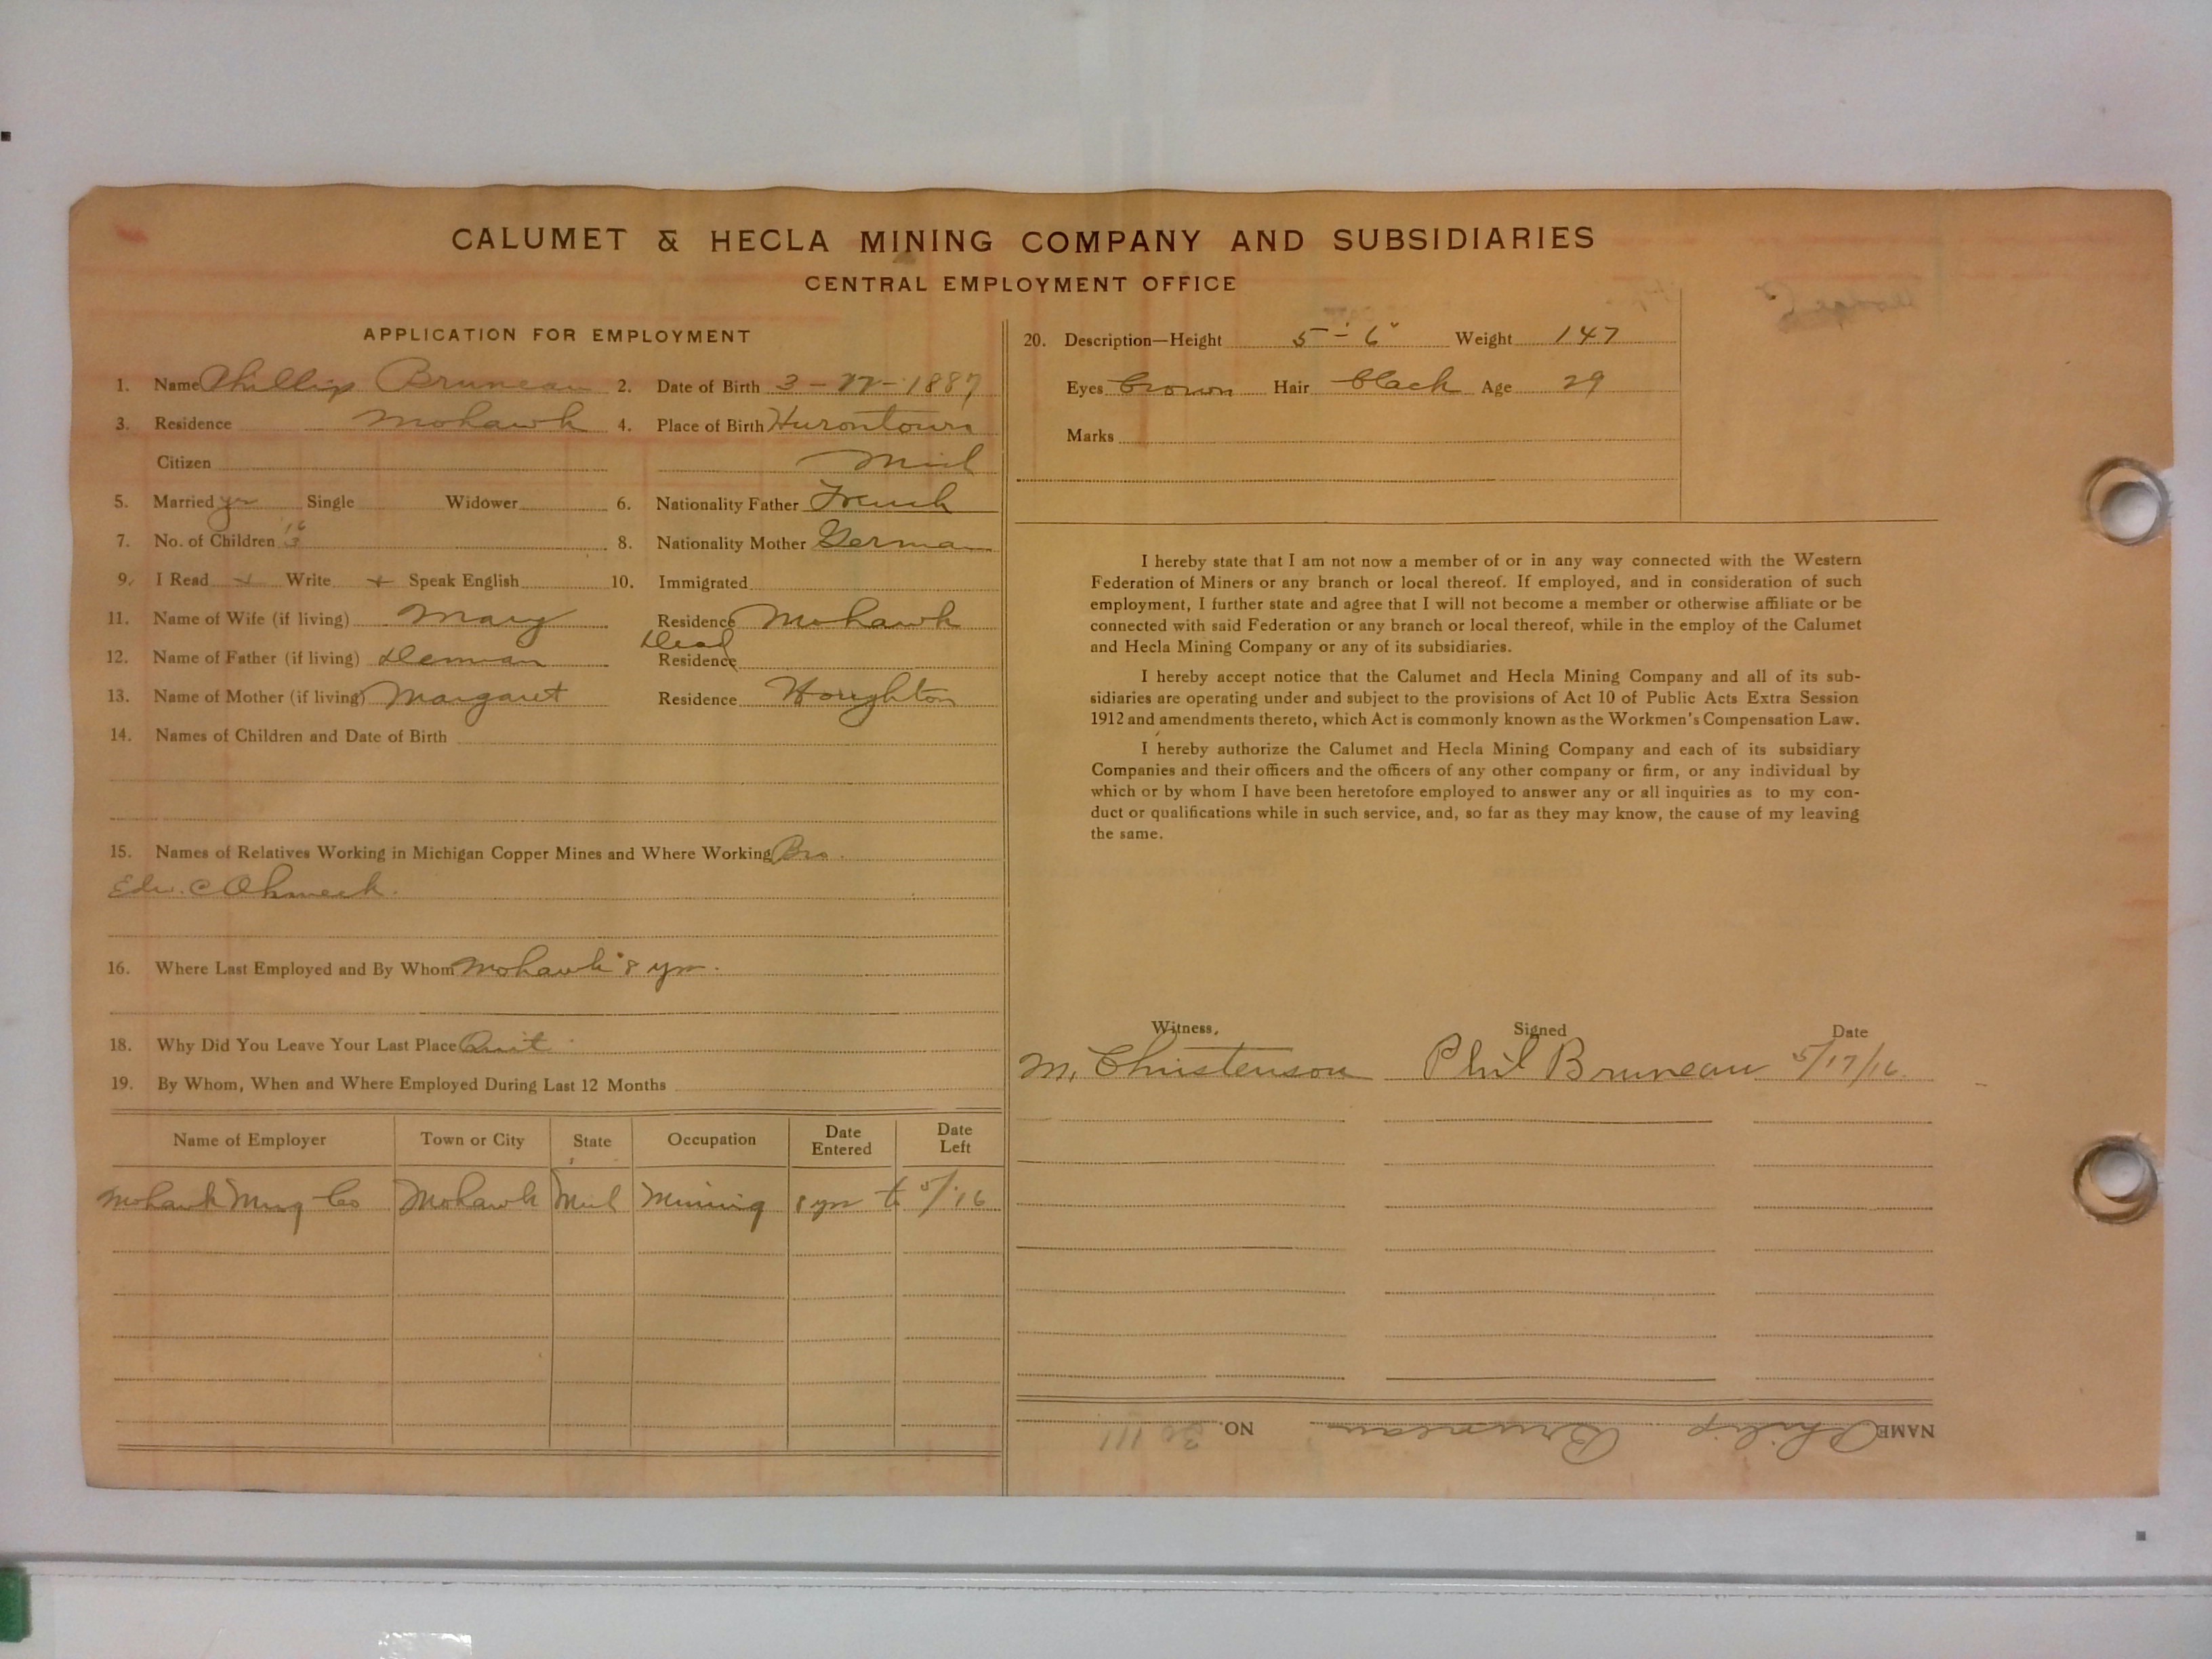 CALUMET & HECLA MINING COMPANY AND SUBSIDIARIES
CENTRAL EMPLOYMENT OFFICE
APPLICATION FOR EMPLOYMENT
1. Name Phillip Bruneau 2. Date of Birth 3 - 1887
3. Residence Mohawk 4. Place of Birth Hurontown
Citizen Mich
5. Married yes Single Widower 6. Nationality Father French
7. No. of Children 8. Nationality Mother German
9. I Read + Write + Speak English 10. Immigrated
11. Name of Wife (if living) Mary Residence Mohawk
12. Name of Father (if living) Dead Residence
13. Name of Mother (if living) Margaret Residence Houghton
14. Names of Children and Date of Birth
15. Names of Relatives Working in Michigan Copper Mines and Where Working Bro.
Edw. Ahmeek.
16. Where Last Employed and By Whom Mohawk 8 yrs.
18. Why Did You Leave Your Last Place Quit
19. By Whom, When and Where Employed During Last 12 Months
Name of Employer Town or City State Occupation Date Entered Date Left
Mohawk Mng Co Mohawk Mich Mining 8 yrs to 5/16
20. Description—Height 5'-6" Weight 147
Eyes brown Hair black Age 29
Marks
I hereby state that I am not now a member of or in any way connected with the Western
Federation of Miners or any branch or local thereof. If employed, and in consideration of such
employment, I further state and agree that I will not become a member or otherwise affiliate or be
connected with said Federation or any branch or local thereof, while in the employ of the Calumet
and Hecla Mining Company or any of its subsidiaries.
I hereby accept notice that the Calumet and Hecla Mining Company and all of its sub-
sidiaries are operating under and subject to the provisions of Act 10 of Public Acts Extra Session
1912 and amendments thereto, which Act is commonly known as the Workmen's Compensation Law.
I hereby authorize the Calumet and Hecla Mining Company and each of its subsidiary
Companies and their officers and the officers of any other company or firm, or any individual by
which or by whom I have been heretofore employed to answer any or all inquiries as to my con-
duct or qualifications while in such service, and, so far as they may know, the cause of my leaving
the same.
Witness, Signed Date
M. Christenson Phil Bruneau 5/17/16
NAME Philip Bruneau NO. 30111